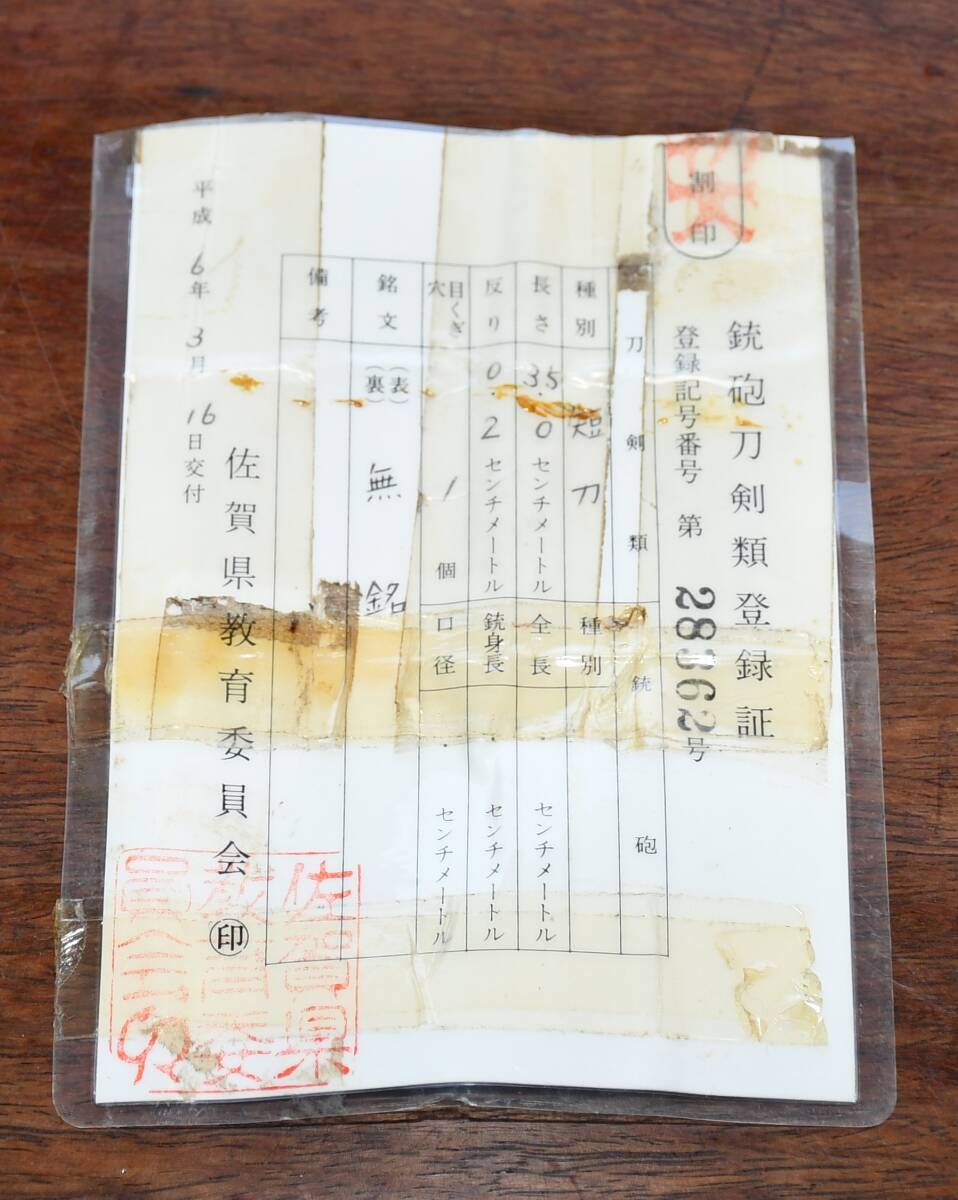 割印
銃砲刀剣類登録証
登録記号番号 第 28362号
刀剣類
種別 短刀
長さ 35.0センチメートル
反り 0.2センチメートル
目くぎ穴 1個
銘文 (表) (裏) 無銘
備考
銃砲
種別
全長 .センチメートル
銃身長 .センチメートル
口径 .センチメートル
平成6年3月16日交付
佐賀県教育委員会 ㊞
佐賀県
教育委
員会印